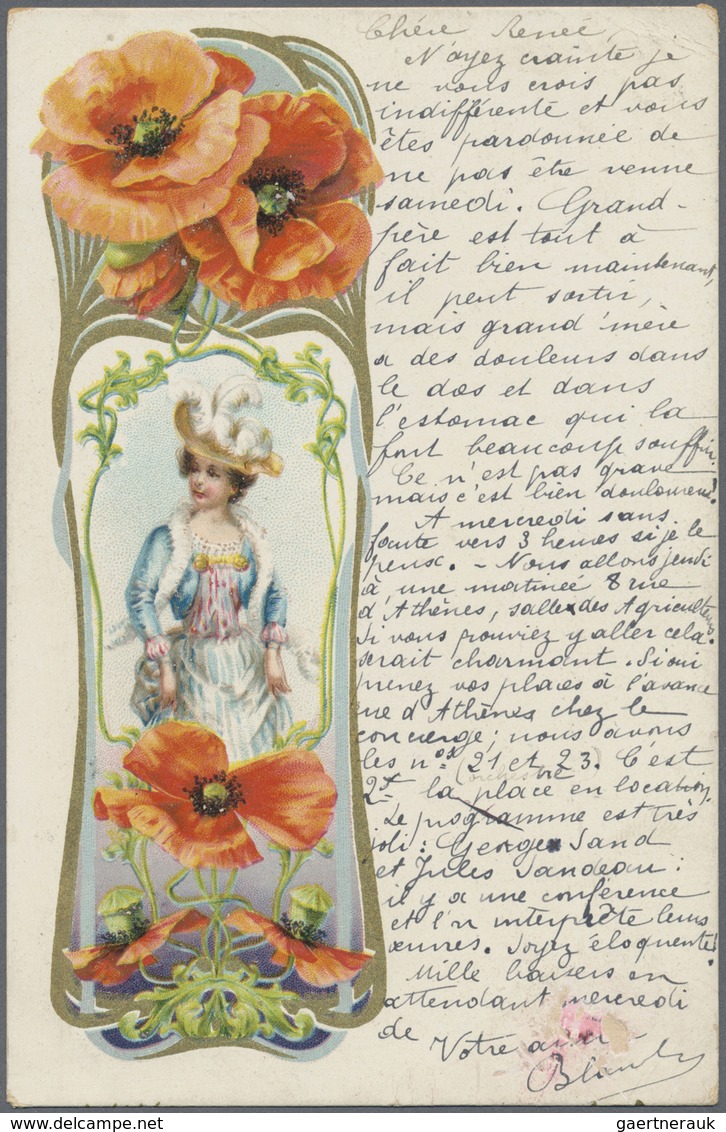 Chére Renée,
N'ayez crainte je
ne vous crois pas
indifférente et vous
êtes pardonnée de
ne pas être venue
samedi. Grand-
père est tout à
fait bien maintenant,
il peut sortir,
mais grand'mère
a des douleurs dans
le dos et dans
l'estomac qui la
font beaucoup souffrir.
Ce n'est pas grave
mais c'est bien douloureux!
A mercredi sans
faute vers 3 heures si je le
peux. - Nous allons jeudi
à une matinée 8 rue
d'Athènes, salle des Agriculteurs.
Si vous pouviez y aller cela
serait charmant. Si oui
prenez vos places à l'avance
rue d'Athènes chez le
concierge; nous avons
les nos 21 et 23. C'est
(orchestre)
2f la place en location.
Le programme est très
joli: George Sand
et Jules Sandeau:
il y a une conférence
et l'on interprète leurs
œuvres. Soyez éloquente!
Mille baisers en
attendant mercredi
de Votre amie
gaertnerauk